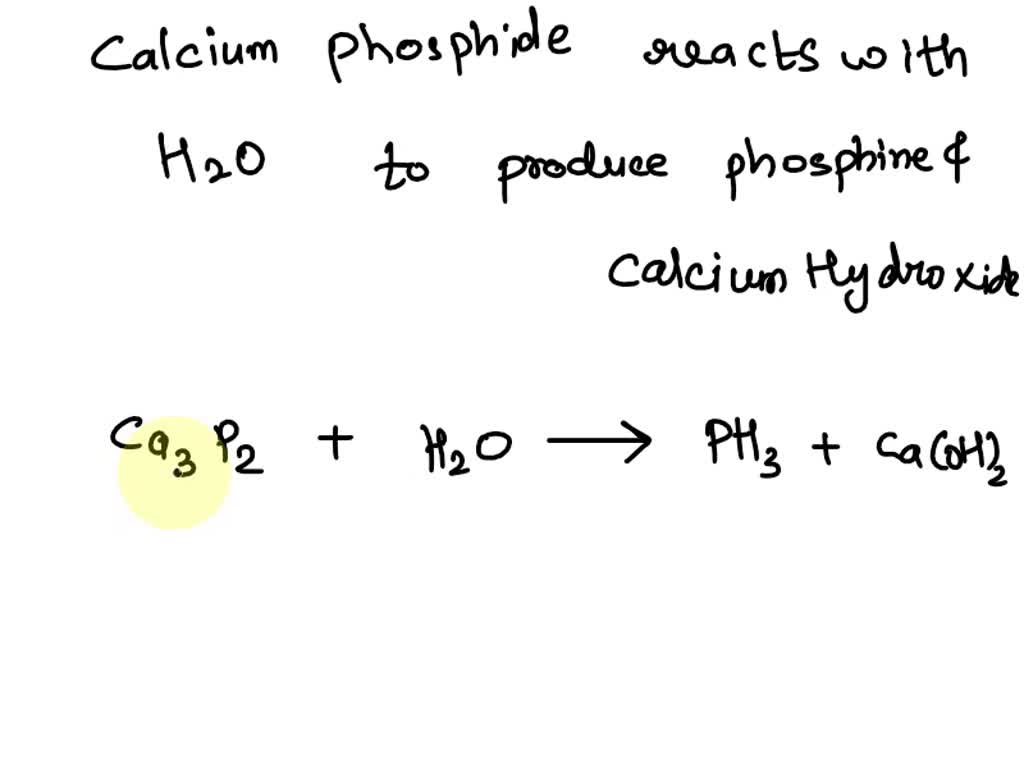 Calcium phosphide reacts with
H₂O to produce phosphine &
Calcium Hydroxide
Ca₃P₂ + H₂O → PH₃ + Ca(OH)₂